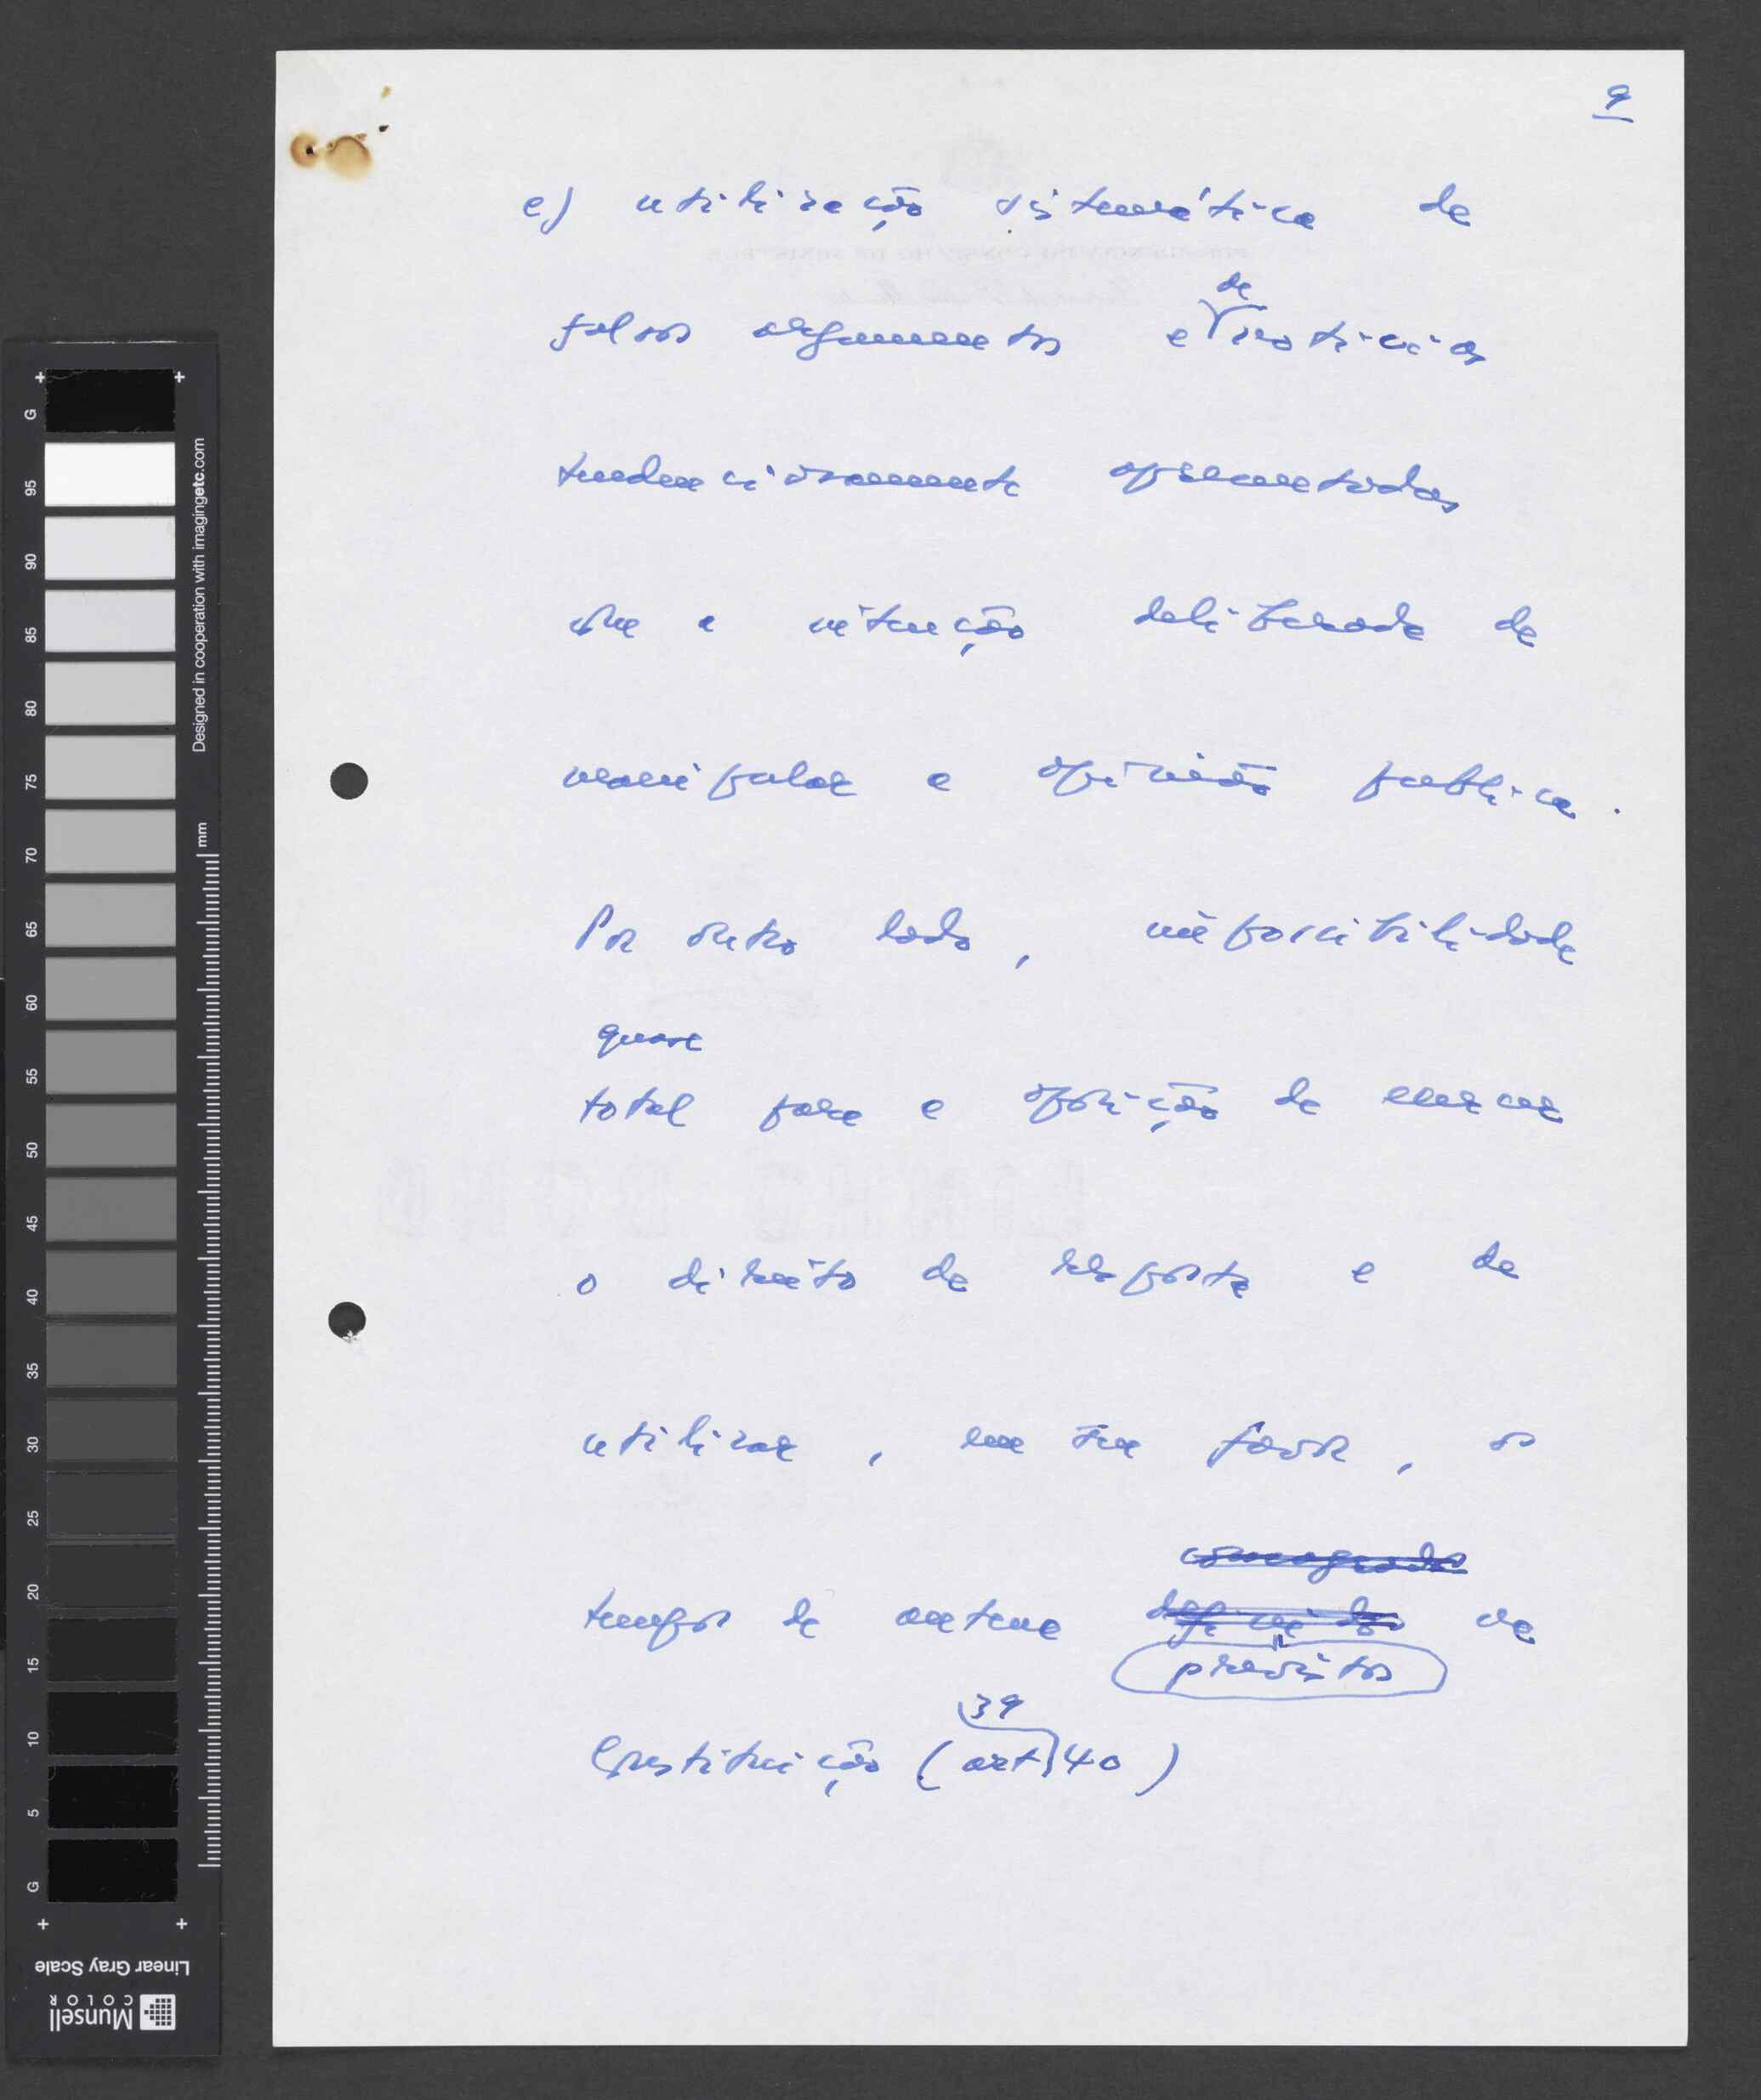 9
e) utilização sistemática de
falsos argumentos e de noticias
tendenciosamente apresentadas
com a intenção deliberada de
manipular a opinião publica.
Por outro lado, impossibilidade
quase
total para a oposição de exercer
o direito de resposta e de
utilizar, em seu favor, os
consagrados
tempos de antena definidos na
previstos
39
Constituição (art 40)
G
95
90
85
80
75
70
65
60
55
50
45
40
35
30
25
20
15
10
5
G
Designed in cooperation with imagingetc.com
mm
Linear Gray Scale
Munsell
COLOR